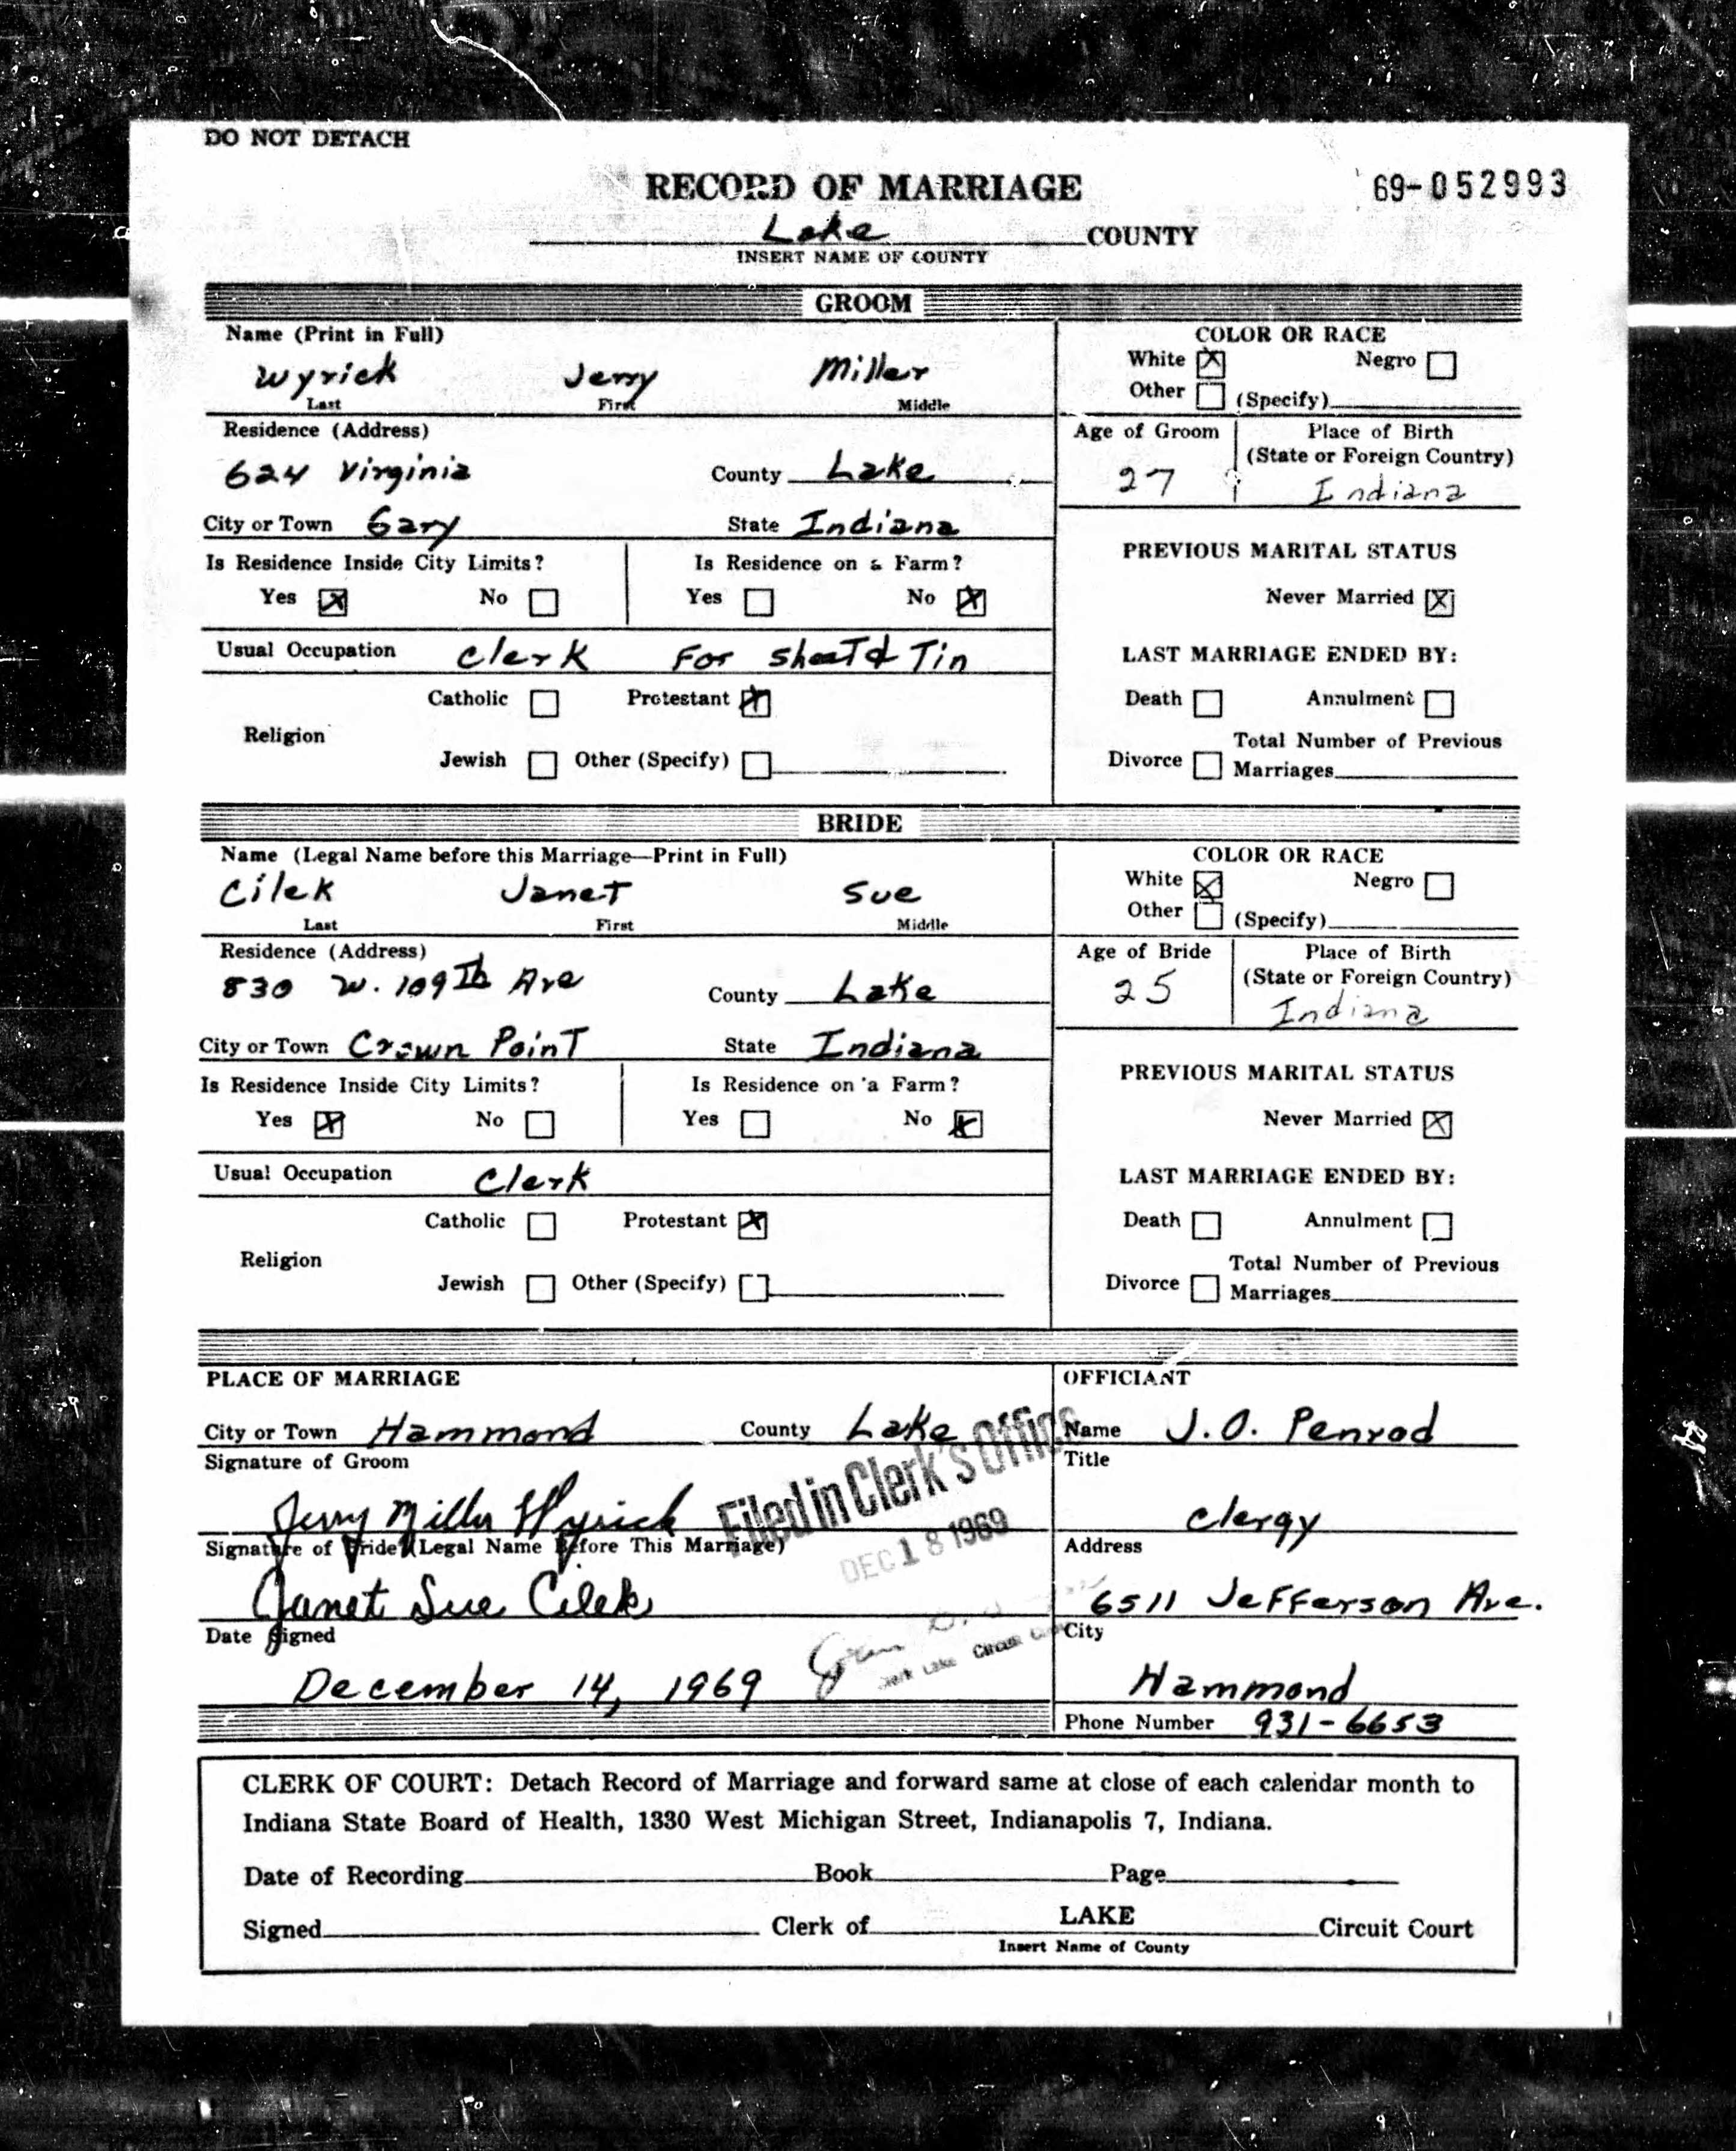 DO NOT DETACH
RECORD OF MARRIAGE 69-052993
Lake COUNTY
INSERT NAME OF COUNTY
GROOM
Name (Print in Full) COLOR OR RACE
White ☒ Negro ☐
Wyrick Jerry Miller
Last First Middle
Other ☐ (Specify)
Residence (Address) Age of Groom Place of Birth
(State or Foreign Country)
624 Virginia County Lake 27 Indiana
City or Town Gary State Indiana
Is Residence Inside City Limits? Is Residence on a Farm? PREVIOUS MARITAL STATUS
Yes ☒ No ☐ Yes ☐ No ☒ Never Married ☒
Usual Occupation Clerk For Sheet & Tin LAST MARRIAGE ENDED BY:
Catholic ☐ Protestant ☒ Death ☐ Annulment ☐
Religion Total Number of Previous
Jewish ☐ Other (Specify) ☐ Divorce ☐ Marriages
BRIDE
Name (Legal Name before this Marriage—Print in Full) COLOR OR RACE
White ☒ Negro ☐
Cilek Janet Sue
Last First Middle
Other ☐ (Specify)
Residence (Address) Age of Bride Place of Birth
(State or Foreign Country)
830 W. 109Th Ave County Lake 25 Indiana
City or Town Crown Point State Indiana
Is Residence Inside City Limits? Is Residence on a Farm? PREVIOUS MARITAL STATUS
Yes ☒ No ☐ Yes ☐ No ☒ Never Married ☒
Usual Occupation Clerk LAST MARRIAGE ENDED BY:
Catholic ☐ Protestant ☒ Death ☐ Annulment ☐
Religion Total Number of Previous
Jewish ☐ Other (Specify) ☐ Divorce ☐ Marriages
PLACE OF MARRIAGE OFFICIANT
City or Town Hammond County Lake Name J.O. Penrod
Signature of Groom Title
Jerry Miller Wyrick Clergy
Filed in Clerk's Office
DEC 18 1969
Signature of Bride (Legal Name Before This Marriage) Address
Janet Sue Cilek 6511 Jefferson Ave.
Clerk Lake Circuit
Date Signed City
December 14, 1969 Hammond
Phone Number 931-6653
CLERK OF COURT: Detach Record of Marriage and forward same at close of each calendar month to
Indiana State Board of Health, 1330 West Michigan Street, Indianapolis 7, Indiana.
Date of Recording Book Page
Signed Clerk of LAKE Circuit Court
Insert Name of County